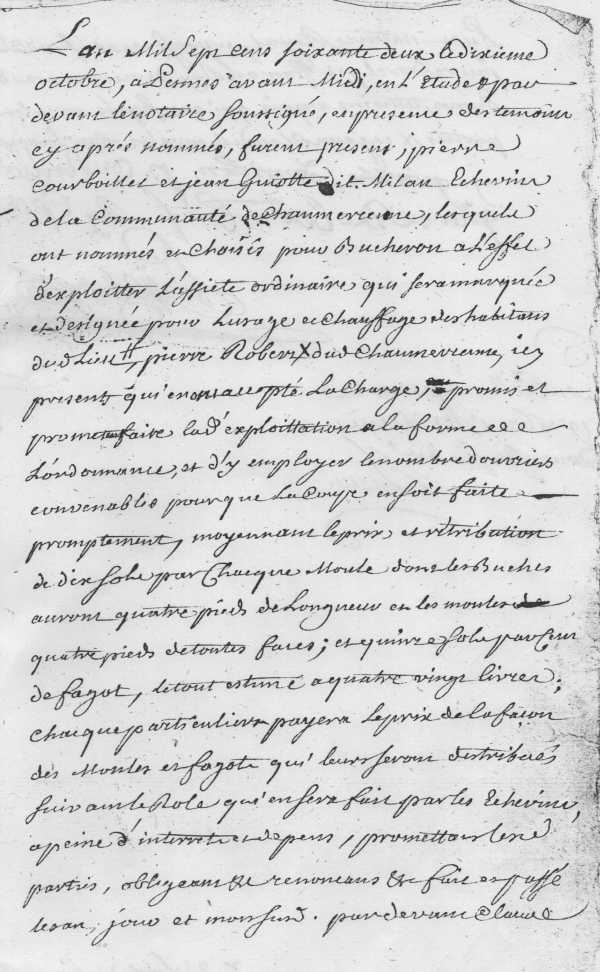 L'an Mil Sept cens soixante deux le dixieme
octobre, a Pesmes avant Midi, en L'Etude & par
devant le notaire soussigné, en presence des temoins
cy aprés nommés, furent present, pierre
Courboillet et jean Guiotte dit Milan Echevins
de la Communauté de Chaumercenne, lesquels
ont nommés et choisis pour Bucheron a L'effet
d'exploitter L'assiete ordinaire qui sera marquée
et designée pour Lusage et Chauffage des habitans
du d Lieu, pierre Robert dud Chaumercenne, icy
present qui en ont accepté La Charge, promis et
promet faire lad exploittation a la forme de
L'ordonnance, et d'y employer le nombre d'ouvriers
convenables pour que La Coupe en soit faite
promptement, moyennant le prix et rétribution
de dix sols par Chacque Moule dont les Buches
auront quatre pieds de Longueur et les moules de
quatre pieds de toutes faces; et quinze sols par Cent
de fagot, le tout estimé a quatre vingt livres;
Chacque particuliers payera Le prix de la façon
des Moules et fagots qui leurs seront distribués
suivant le Role qui en sera fait par les Echevins,
a peine d'interrets et depens, promettans les d
partis, obligeant &c renonceans &c fait et passé
les an, jour et mois susd. par devant Claude